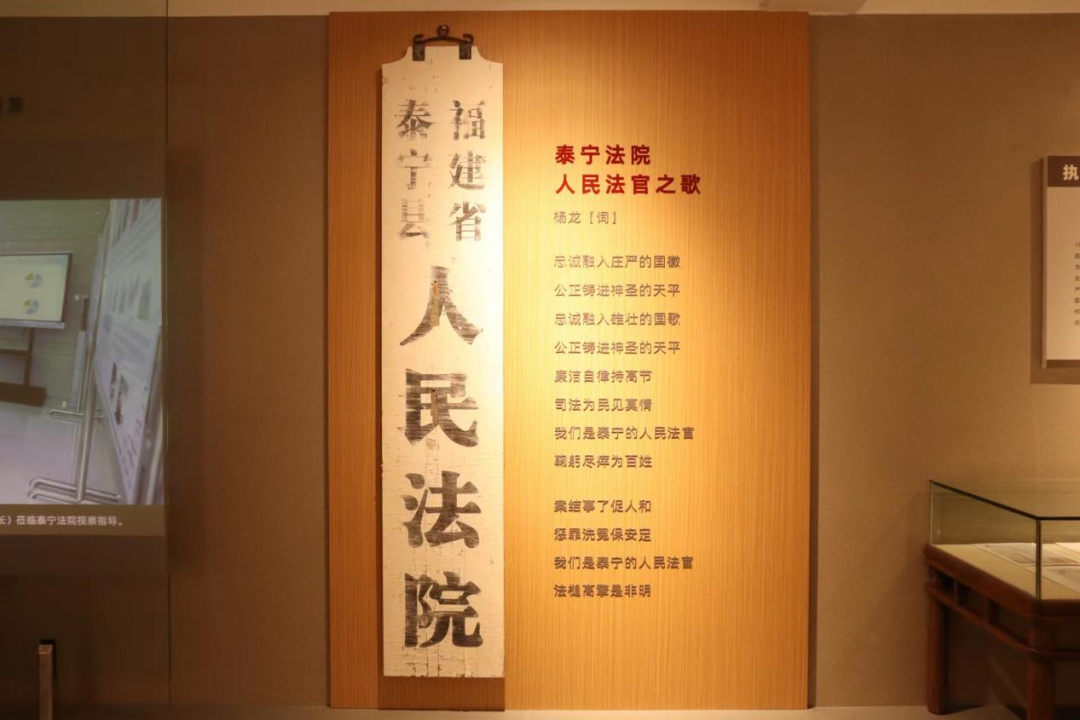 福建省
泰宁县
人民法院
泰宁法院
人民法官之歌
杨龙【词】
忠诚融入庄严的国徽
公正铸进神圣的天平
忠诚融入雄壮的国歌
公正铸进神圣的天平
廉洁自律持高节
司法为民见真情
我们是泰宁的人民法官
鞠躬尽瘁为百姓
案结事了促人和
惩罪洗冤保安定
我们是泰宁的人民法官
法槌高擎是非明
长）莅临泰宁法院视察指导。
执